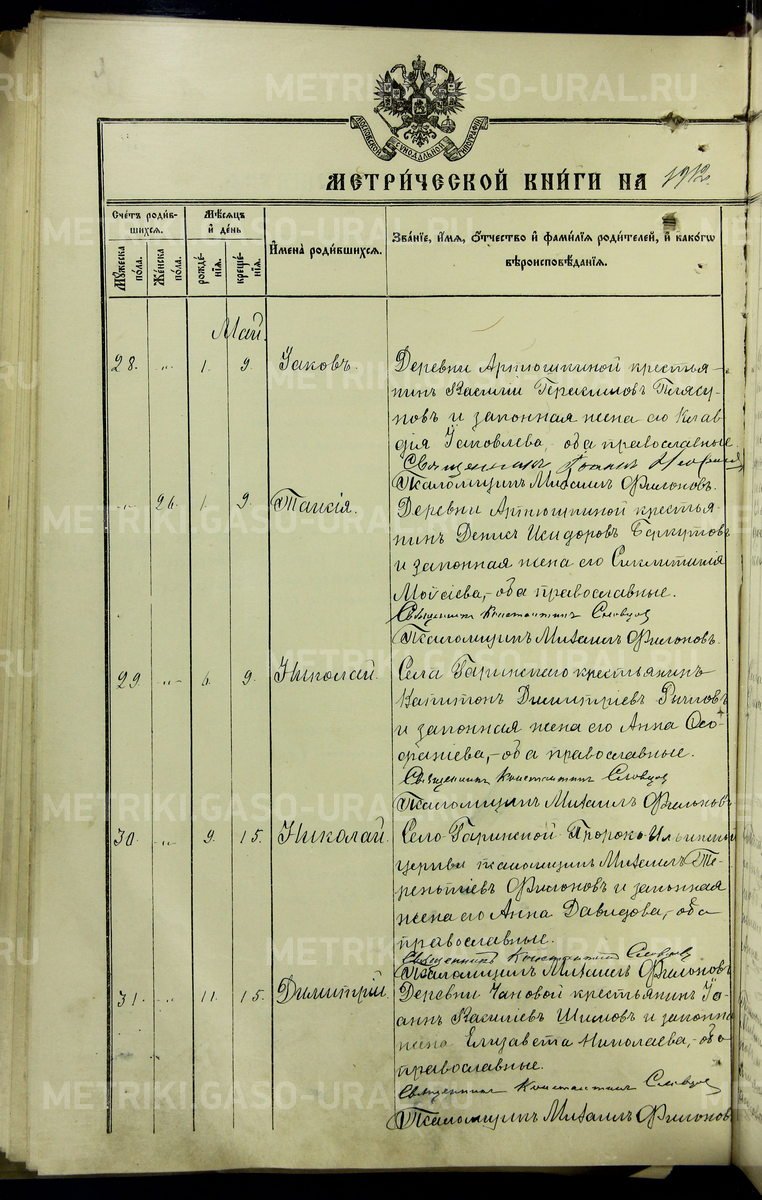 МОСКОВСКОЙ СѴНОДАЛЬНОЙ ТИПОГРАФІИ
МЕТРИ́ЧЕСКОЙ КНИ́ГИ НА 1912 г.
Сче́тъ роди́вшихся.
Мѣ́сяцъ и де́нь
Имена̀ роди́вшихся.
Зва́нїе, и́мя, о́тчество и фами́лїя роди́телей, и како́гѡ вѣроисповѣ́данїя.
Мꙋ́жеска по́ла.
Же́нска по́ла.
рожде́нїя.
креще́нїя.
Май.
28. „ 1. 9. Іаковъ. Деревни Артюшкиной крестья-
нинъ Василій Геракліловъ Плясу-
новъ и законная жена его Клав-
дія Іаковлева, оба православные.
Священникъ Іоаннъ
Псаломщикъ Михаилъ Филоновъ.
„ 26. 1. 9. Таисія. Деревни Артюшкиной крестья-
нинъ Денисъ Исидоровъ Баркутовъ
и законная жена его Синклитикія
Мойсіева,- оба православные.
Священникъ Константинъ Словцов
Псаломщикъ Михаилъ Филоновъ.
29 „ 6. 9. Николай. Села Гаринскаго крестьянинъ
Капитонъ Димитріевъ Рычковъ
и законная жена его Анна Ѳео-
фаніева,- оба православные.
Священникъ Константинъ Словцов
Псаломщикъ Михаилъ Филоновъ
30. „ 9. 15. Николай. Село-Гаринской Пророко-Ильинской
церкви псаломщикъ Михаилъ Те-
рентіевъ Филоновъ и законная
жена его Анна Давидова,- оба
православные.
Священникъ Константинъ Словцов
Псаломщикъ Михаилъ Филоновъ
31. „ 11. 15. Димитрій. Деревни Чановой крестьянинъ Іо-
аннъ Василіевъ Шиловъ и законна
жена Елизавета Николаева,- оба
православные.
Священникъ Константинъ Словцов
Псаломщикъ Михаилъ Филоновъ
METRIKI.GASO-URAL.RU